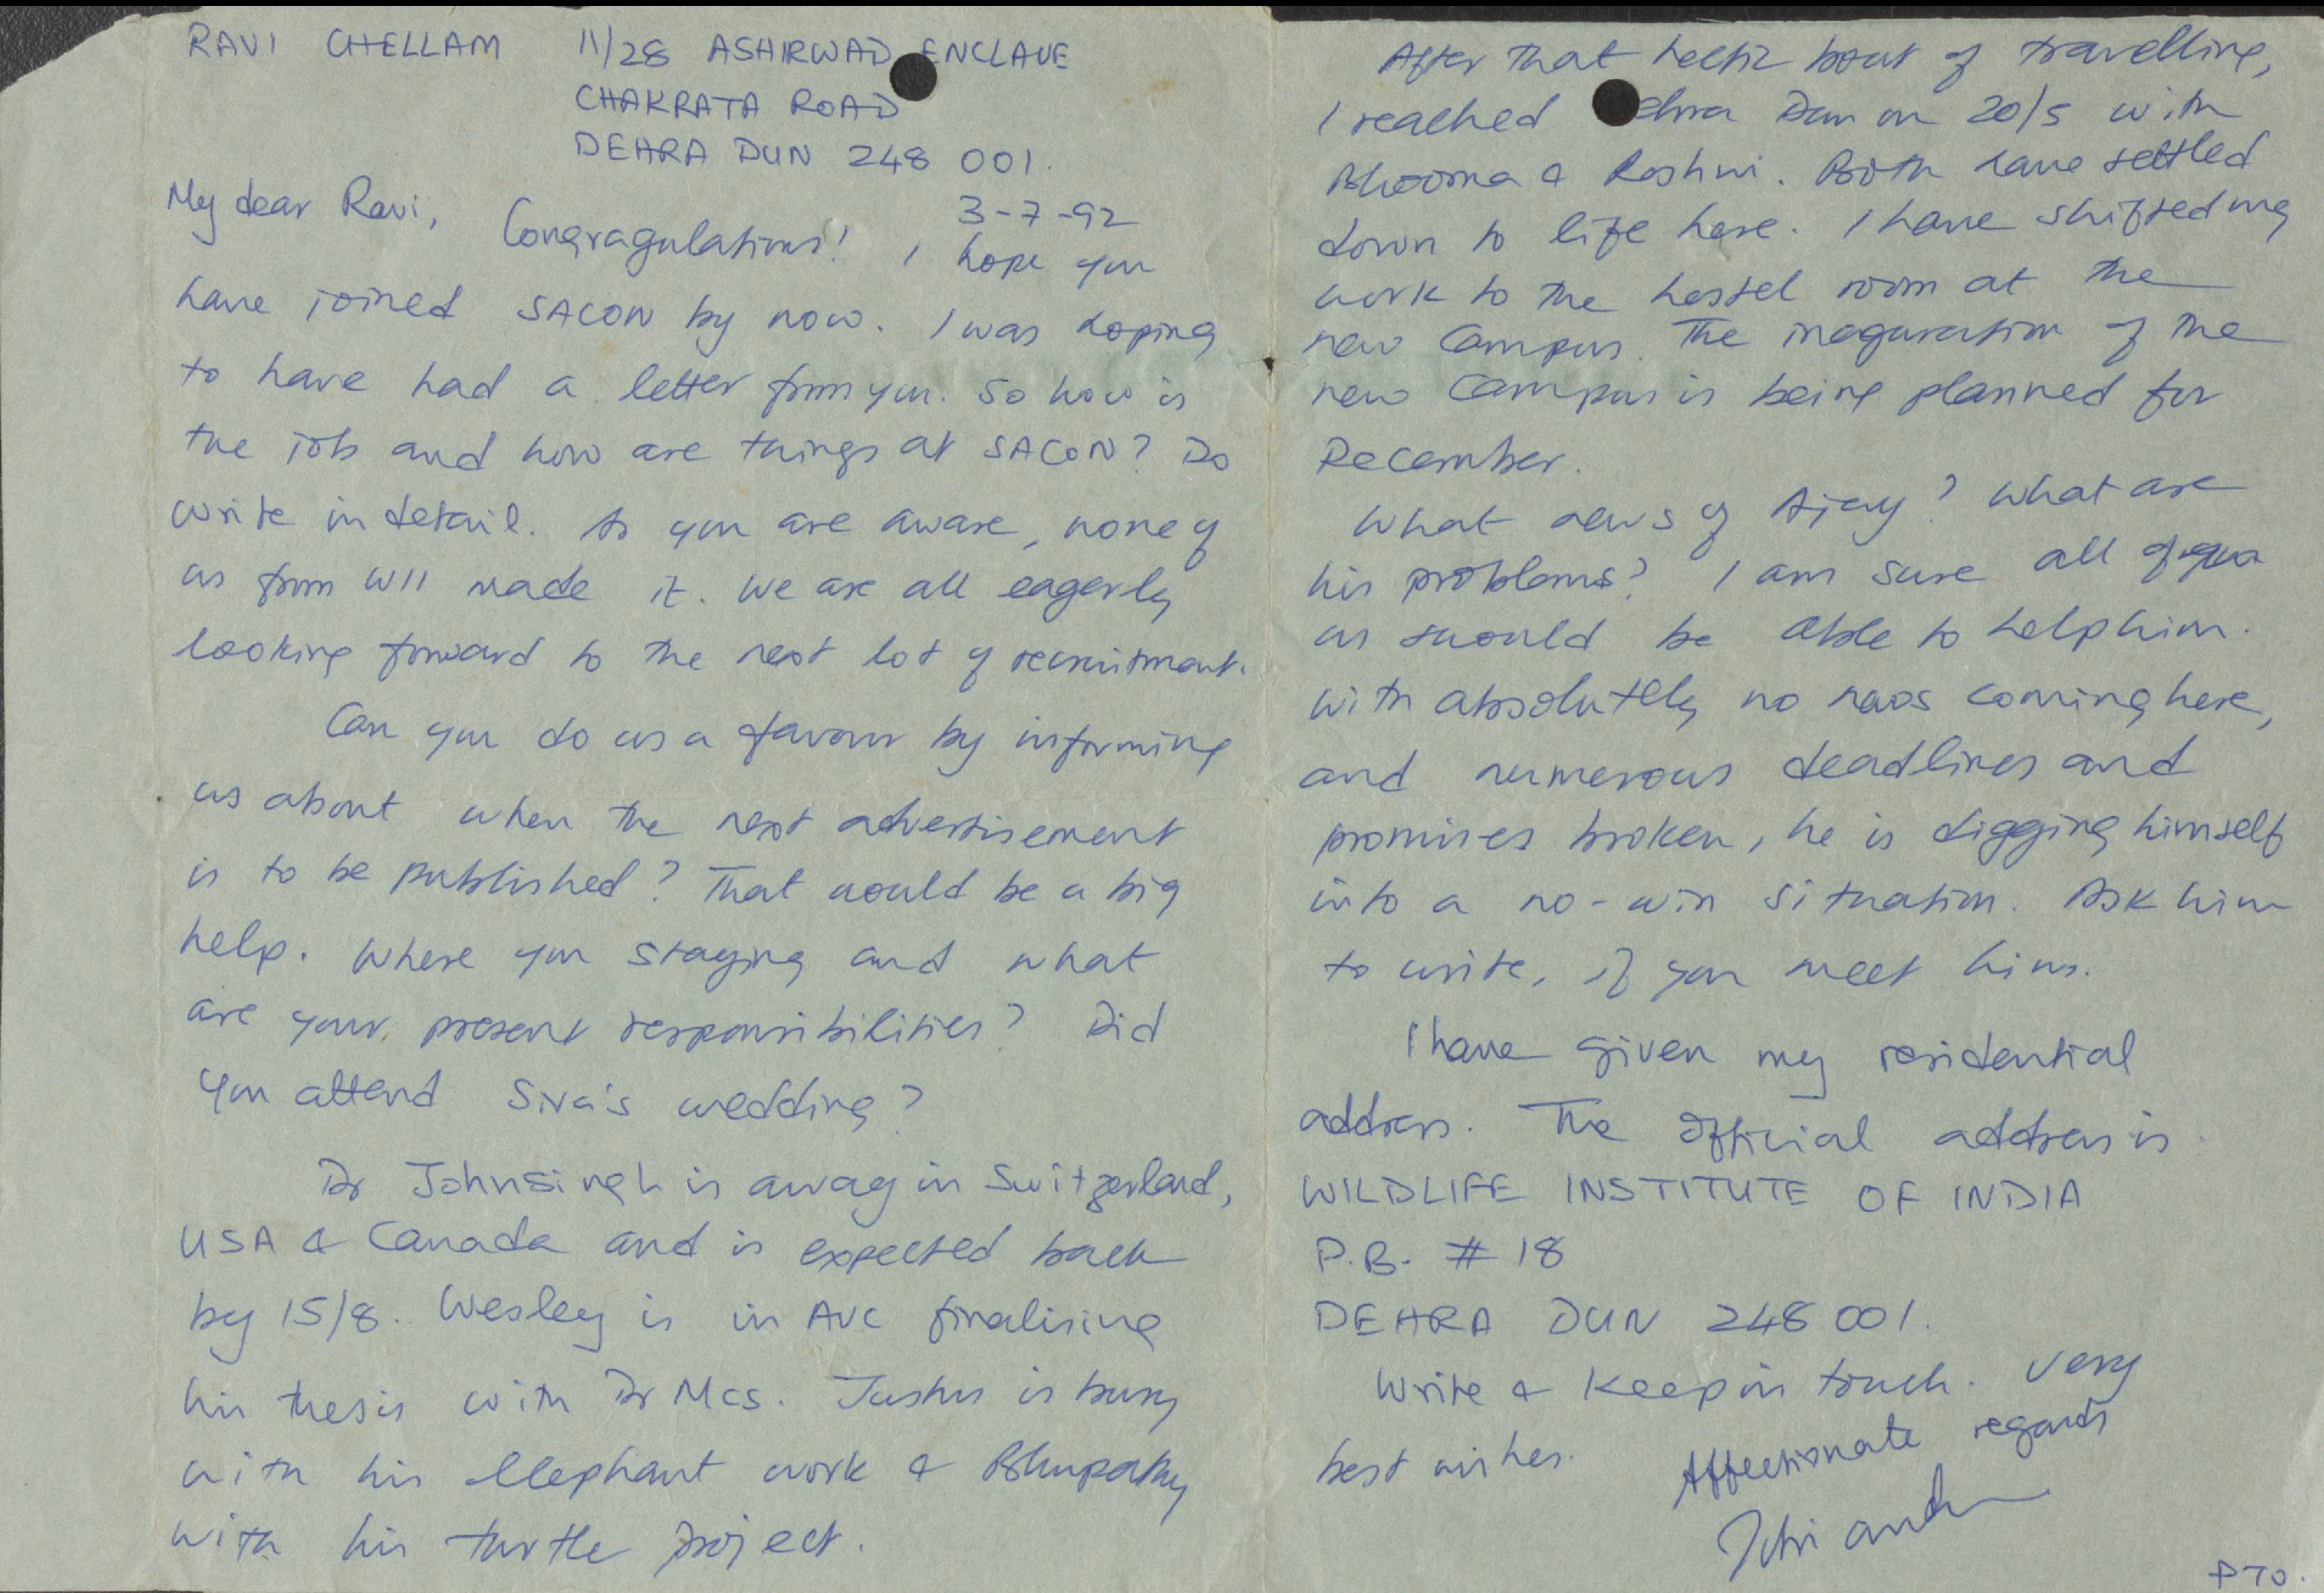 RAVI CHELLAM 11/28 ASHIRWAD ENCLAVE
CHAKRATA ROAD
DEHRA DUN 248 001.
3-7-92
My dear Ravi,
Congragulations! I hope you
have joined SACON by now. I was hoping
to have had a letter from you. So how is
the job and how are things at SACON? Do
write in detail. As you are aware, none of
us from WII made it. We are all eagerly
looking forward to the next lot of recruitment.
Can you do us a favour by informing
us about when the next advertisement
is to be published? That would be a big
help. Where you staying and what
are your present responsibilities? Did
you attend Siva's wedding?
Dr Johnsingh is away in Switzerland,
USA & Canada and is expected back
by 15/8. Wesley is in AVC finalising
his thesis with Dr Mcs. Justus is busy
with his elephant work & Bhupathy
with his turtle project.
After that hectic bout of travelling,
I reached Dehra Dun on 20/5 with
Bhooma & Roshni. Both have settled
down to life here. I have shifted my
work to the hostel room at the
new Campus. The inaguration of the
new Campus is being planned for
December.
What news of Ajay? What are
his problems? I am sure all of
us should be able to help him.
With absolutely no news coming here,
and numerous deadlines and
promises broken, he is digging himself
into a no-win situation. Ask him
to write, if you meet him.
I have given my residential
address. The official address is
WILDLIFE INSTITUTE OF INDIA
P.B. # 18
DEHRA DUN 248 001.
Write & keep in touch. Very
best wishes. Affectionate regards
PTO.